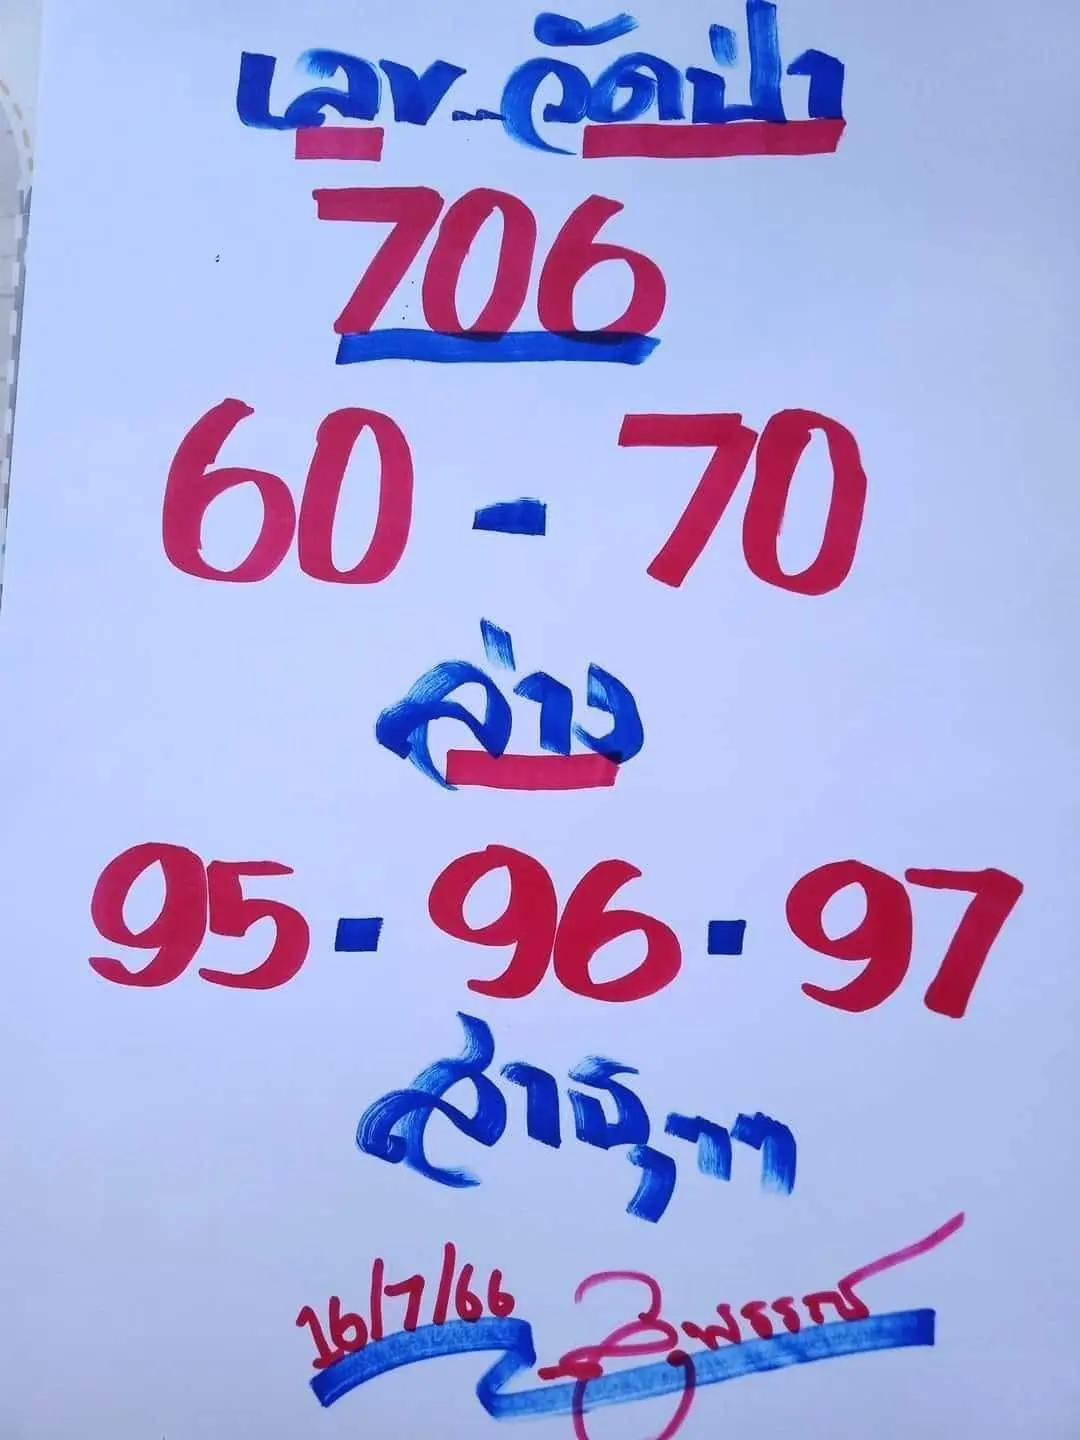 เลข...วัดป่า
706
60 - 70
ล่าง
95 - 96 - 97
สาธุๆๆ
16/7/66 สุพรรณ์